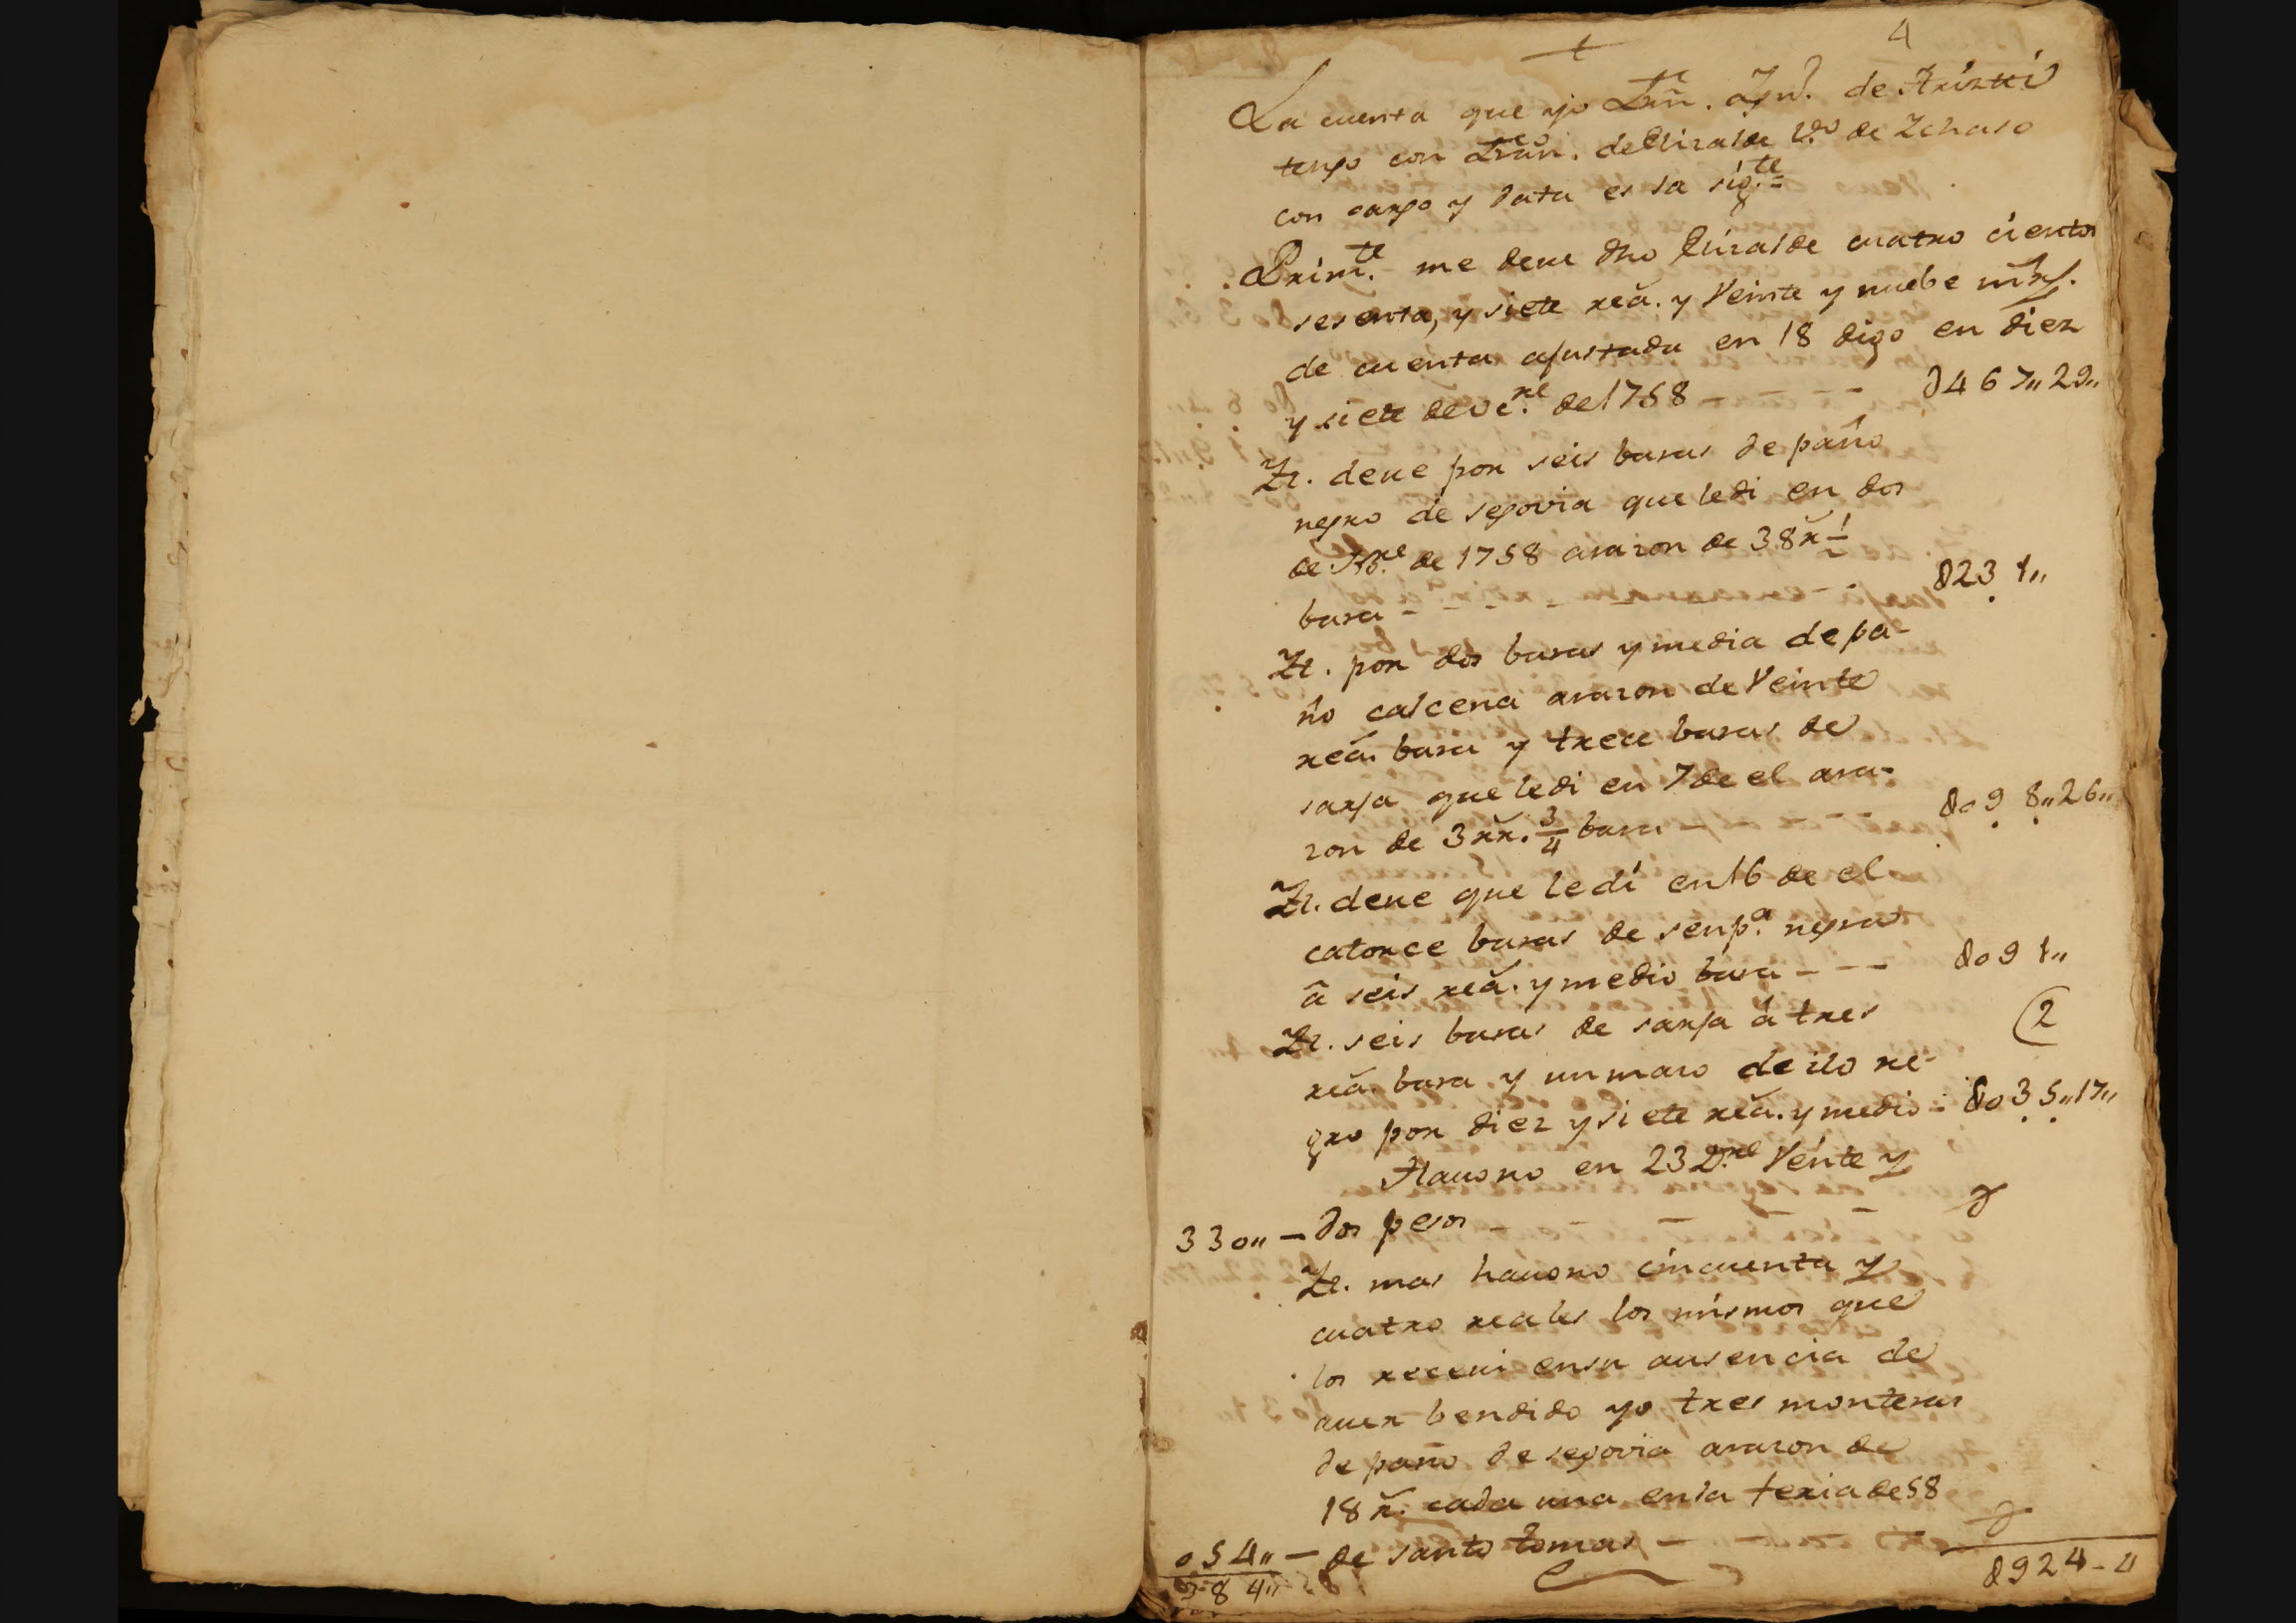 4
La cuenta que yo Jn. de
tengo con Fran.co de Elizalde V.o de Echaso
con cargo y data es la sig.te
Prim.te me deve dho Elizalde cuatro cientos
sesenta, y siete rea. y Veinte y nuebe mrs.
de cuenta ajustada en 18 digo en diez
y siete de de 1758 - - - - 0467,, 29,,
It. deve por seis baras de paño
negro de segovia que le di en dos
de No.re de 1758 arazon de 38 r 1/2
bara - - - - - - 0231,,
It. por dos baras y media de pa-
ño calcena arazon de Veinte
rea. bara y trece baras de
sarja que le di en 7 de el ara-
zon de 3 rr. 3/4 bara - - - - 0098,, 26,,
It. deve que le di en 16 de el
catorce baras de senp.a negra
â seis rea. y medio bara - - - 0091,,
It. seis baras de sarja â tres 2
rea. bara y un mazo de ilo ne-
gro por diez y siete rea. y medio - 0035,, 17,,
Havono en 23 D.re Vente y
330,, - dos pesos - - -
It. mas havono cincuenta y
cuatro reales los mismos que
los recevi en su ausencia de
aver bendido yo tres monteras
de paño de segovia arazon de
18 r. cada una en la feria de 58
054,, - de santo tomas - - -
384,, 0924 - 4